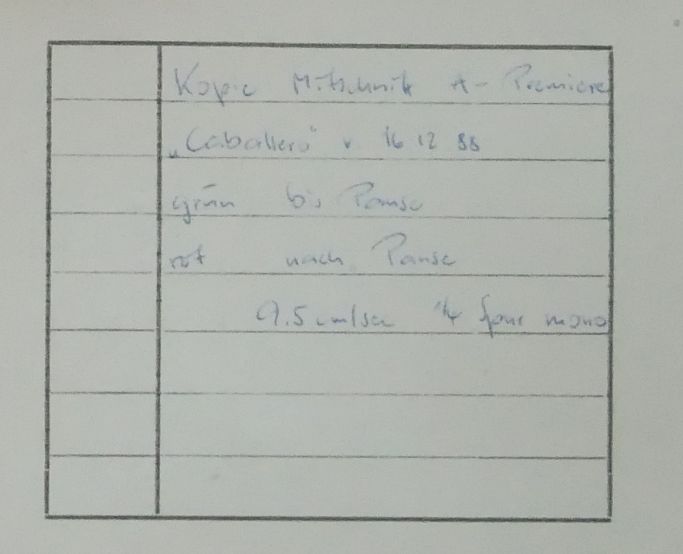 Kopie Mitschnitt A-Premiere
„Caballero" v. 16 12 88
grün bis Pause
rot nach Pause
9.5 cm/sec 1/4 Spur mono